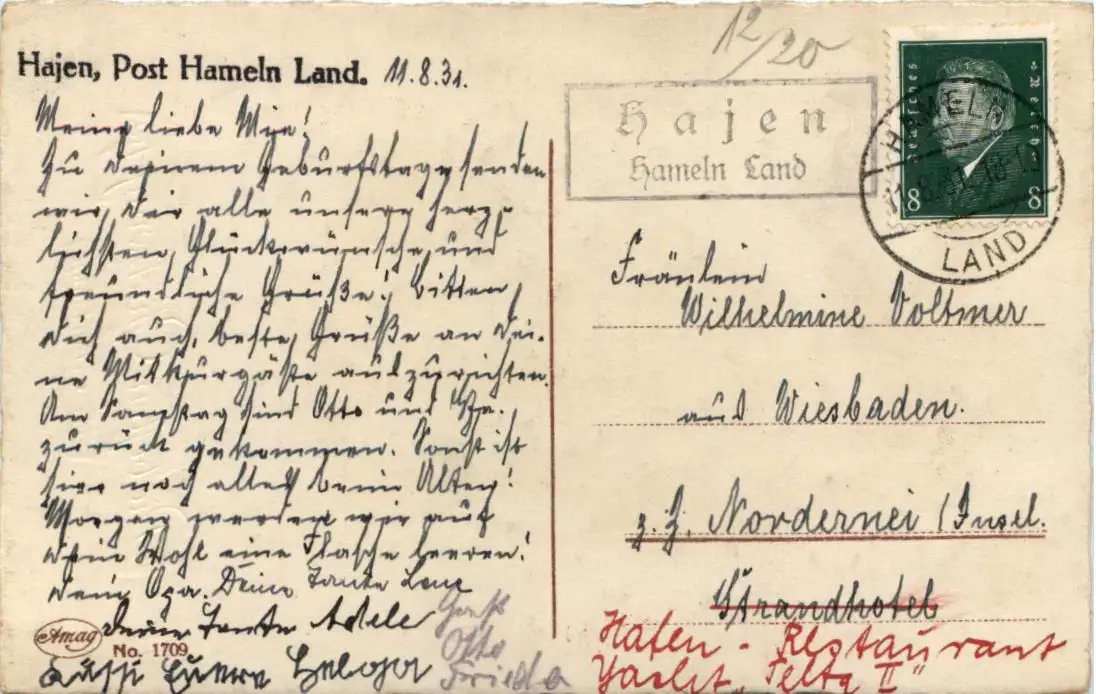 Hajen, Post Hameln Land. 11.8.31.
Meine liebe Mine!
Zu Deinem Geburtstage senden
wir Dir alle unsere herz-
lichsten Glückwünsche und
freundliche Grüße! Bitten
Dich auch, beste Grüße an Dei-
ne Mitkurgäste auszurichten.
Am Samstag sind Otto und
zurück gekommen. Sonst ist
hier noch alles beim Alten!
Morgen werden wir auf
Dein Wohl eine Flasche leeren!
Dein Opa. Deine Tante Lene
Deine Tante Adele
Otto
Frieda
Helga
Amag
No. 1709
12/20
Hajen
Hameln Land
Deutsches Reich
8 8
HAMELN
LAND
Fräulein
Wilhelmine Voltmer
aus Wiesbaden.
z. Z. Nordernei / Insel.
Strandhotel
Hafen - Restaurant
Yacht